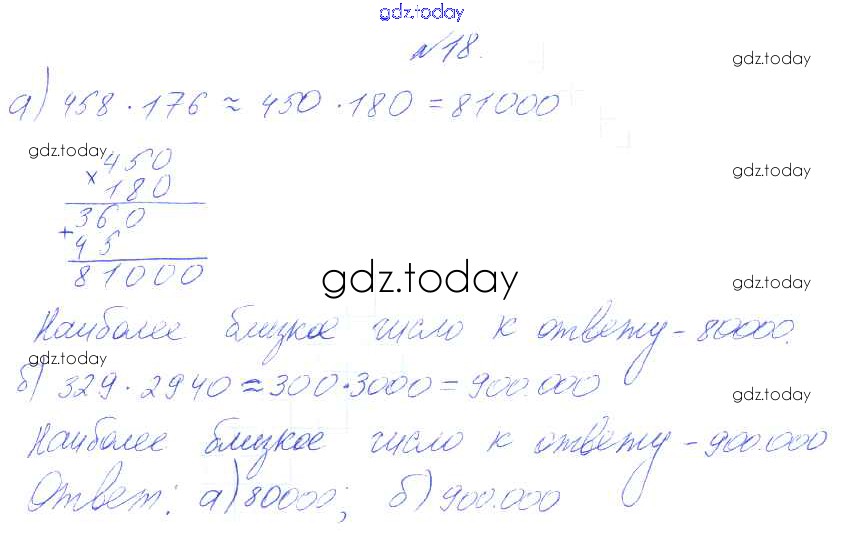 gdz.today
№18.
gdz.today
а) 458 · 176 ≈ 450 · 180 = 81000
gdz.today
450
gdz.today
× 180
360
+ 45
81000
gdz.today
gdz.today
Наиболее близкое число к ответу - 80000.
gdz.today
б) 329 · 2940 ≈ 300 · 3000 = 900.000
gdz.today
Наиболее близкое число к ответу - 900.000
Ответ: а) 80000; б) 900.000
gdz.today